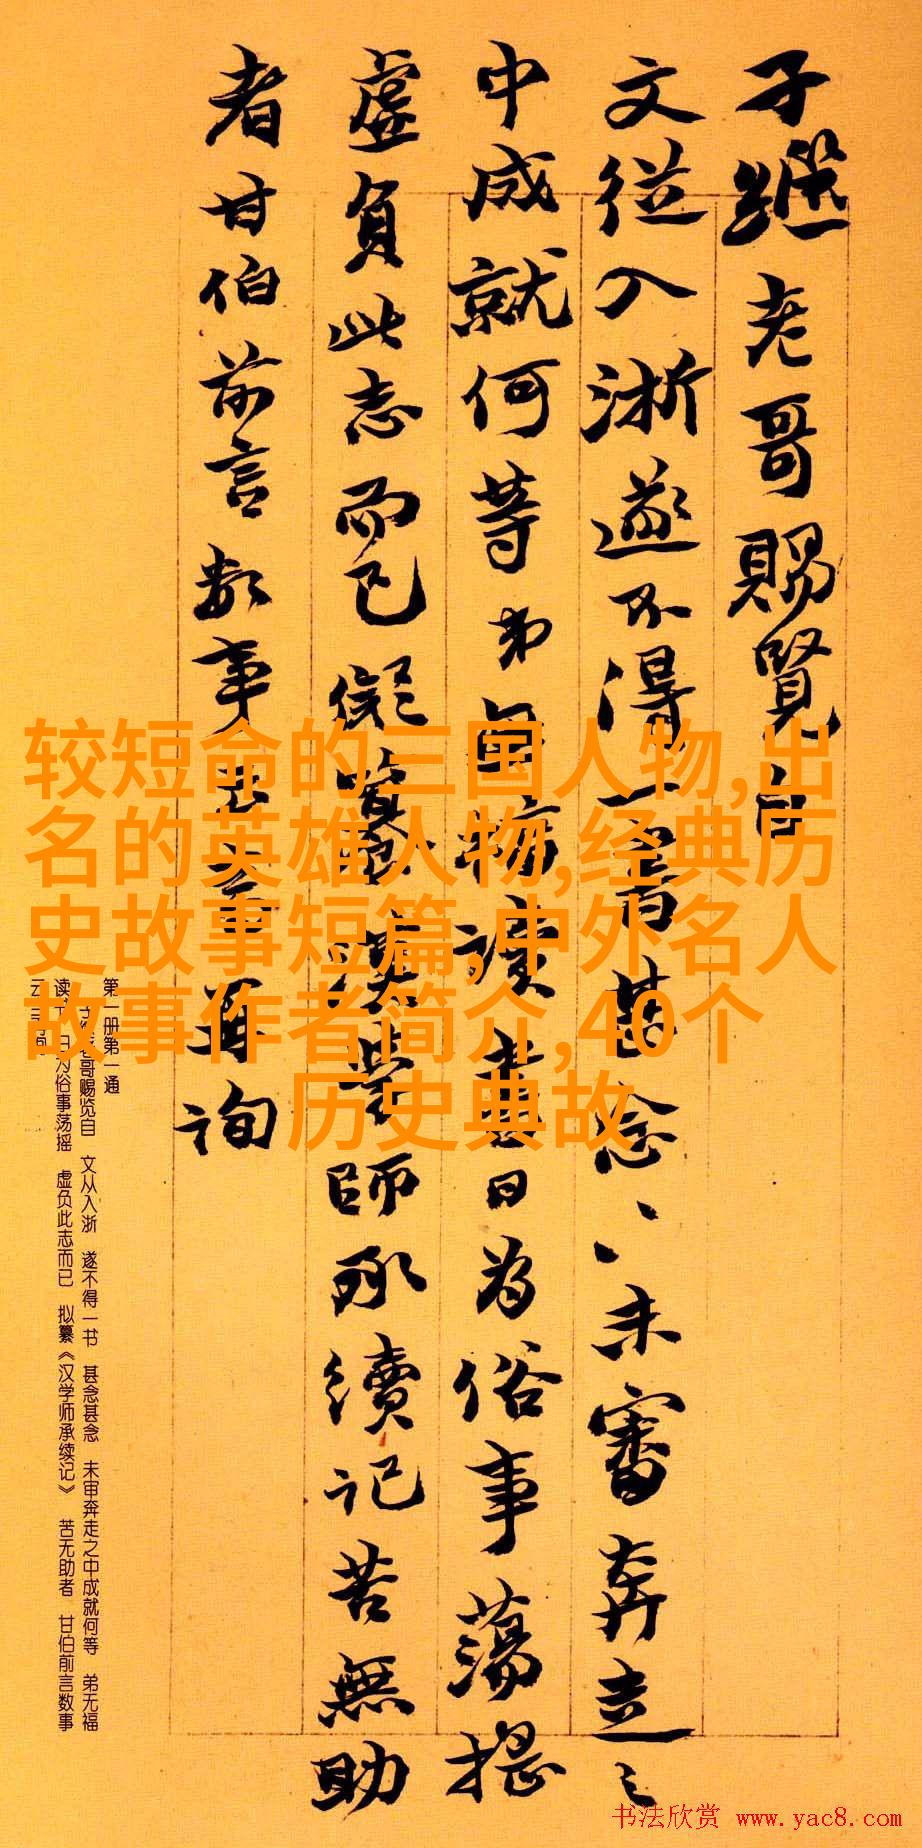 子繼老哥賜覽自
文從入浙遂不得一書甚念〻未審奔走之
中成就何等弟無福讀書日為俗事蕩摇
虛負此志而已擬纂漢學師承續記苦無助
者甘伯前言数事再詢
较短命的三国人物,出
名的英雄人物,经典历
史故事短篇,中外名人
故事作者简介,40个
历史典故
第一册第一通
老哥赐览自 文从入浙 遂不得一书 甚念甚念 未审奔走之中成就何等 弟无福
读 日为俗事荡摇 虚负此志而已 拟纂《汉学师承续记》 苦无助者 甘伯前言数事
云
书法欣赏 www.yac8.com